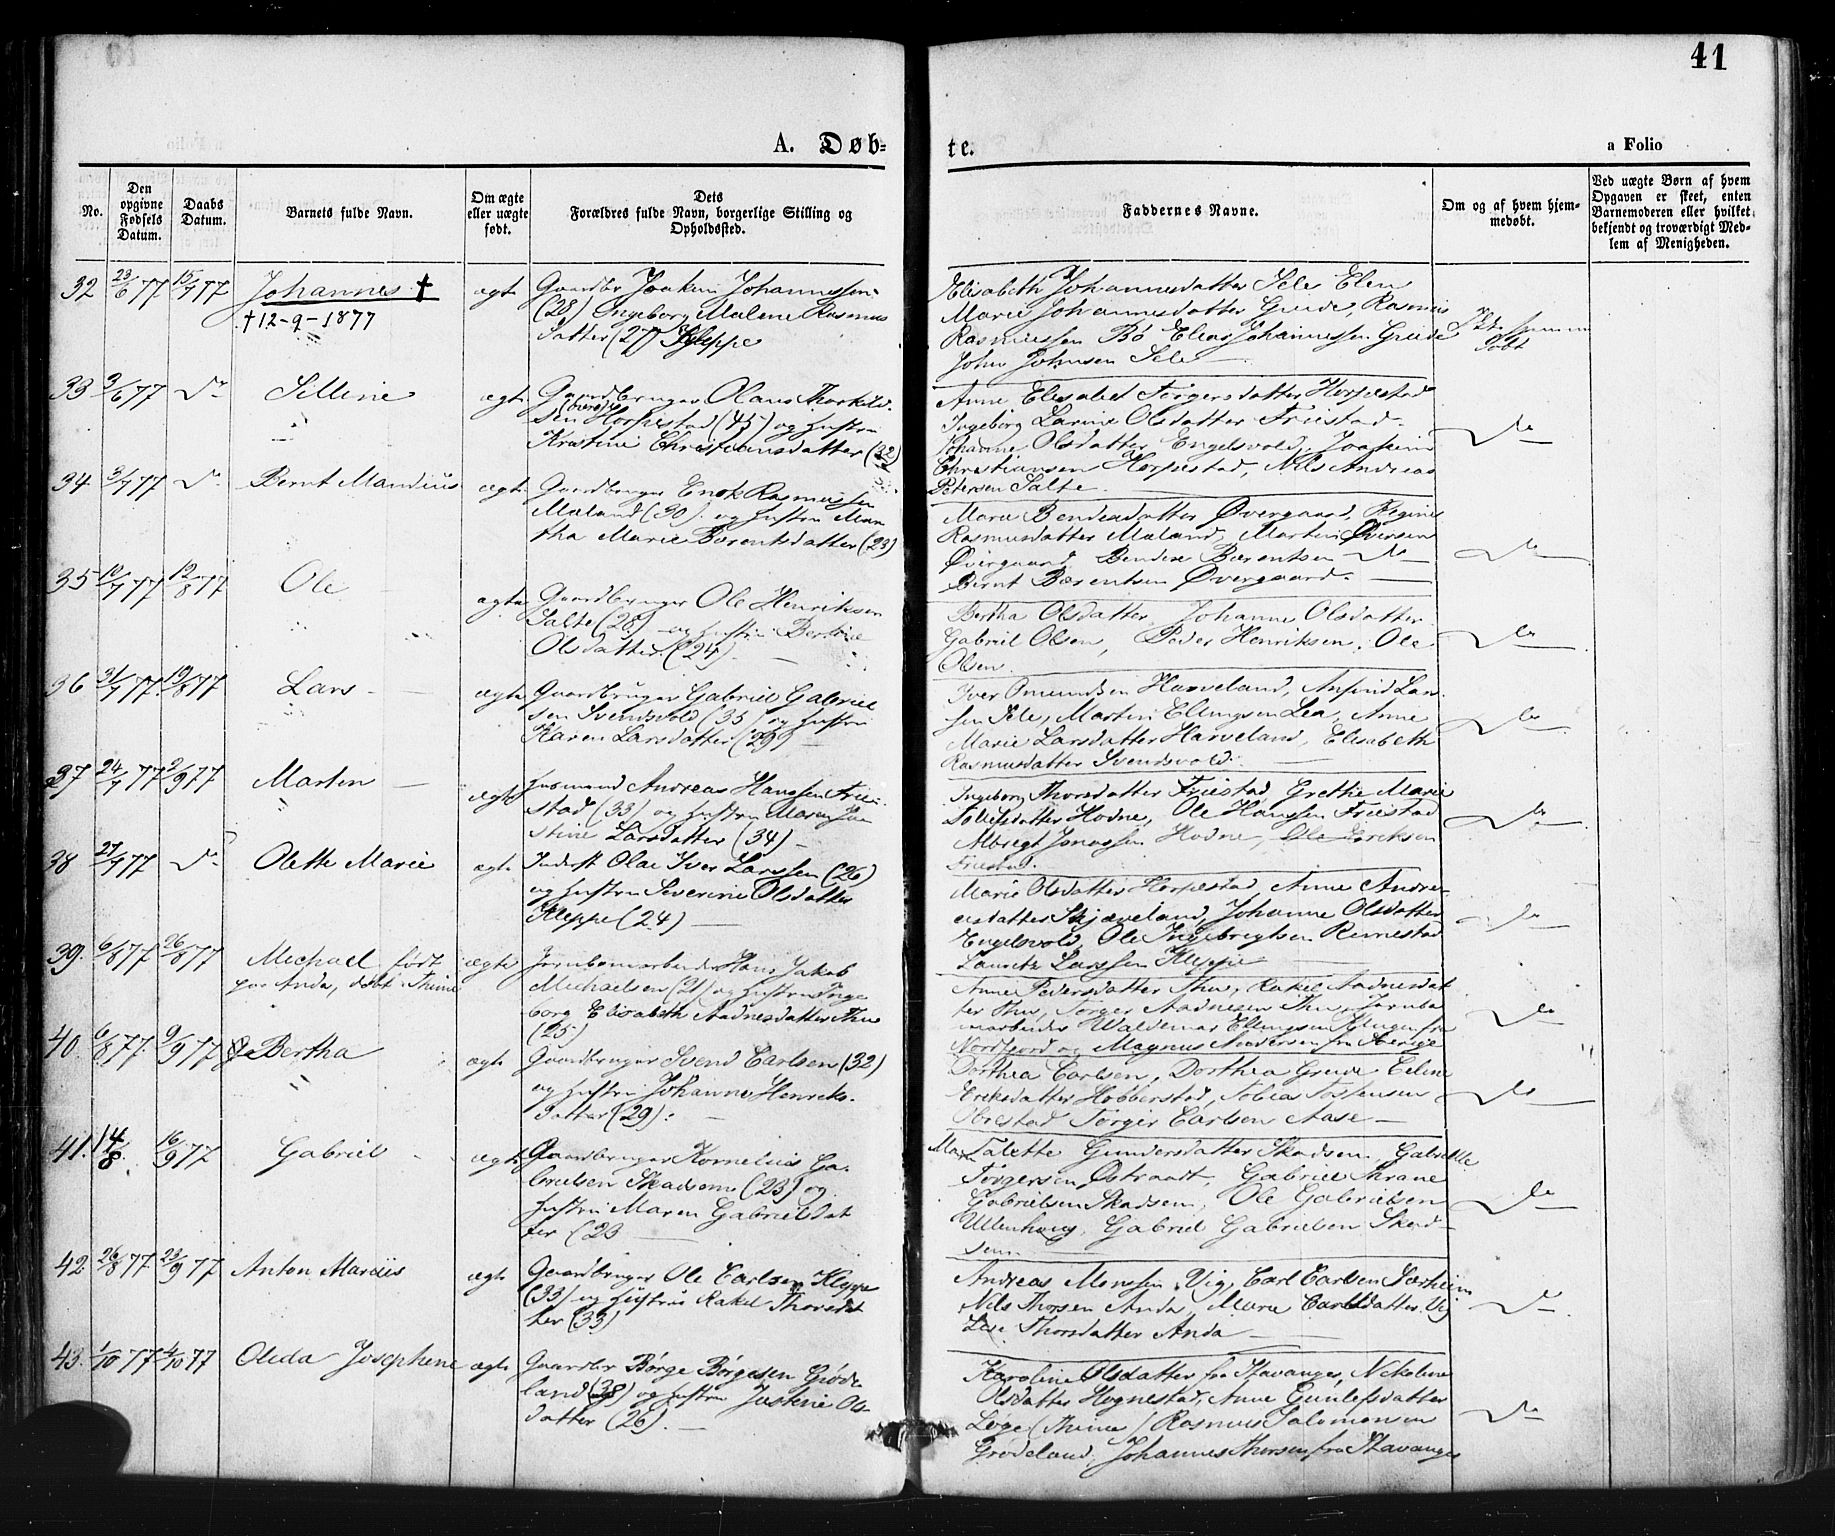 41
A. Døb-
te.
a Folio
No.
Den opgivne Fødsels Datum.
Daabs Datum.
Barnets fulde Navn.
Om ægte eller uægte født.
Dets Forældres fulde Navn, borgerlige Stilling og Opholdssted.
Faddernes Navne.
Om og af hvem hjemmedøbt.
Ved uægte Børn af hvem Opgaven er skeet, enten Barnemoderen eller hvilket bekjendt og troværdigt Medlem af Menigheden.
32 23/6 77 15/7 77 Johannes †
† 12-9-1877
ægte
Gaardbr Joakim Johannessen
(28) Ingeborg Malene Rasmus
datter (27) Kleppe
Elisabeth Johannesdatter Sele Elen
Marie Johannesdatter Grude, Rasmus
Rasmussen Bö Elias Johannessen Grude
John Johnsen Sele
Ikke hjemme
døbt
33 3/6 77 Do Silline
ægte
Gaardbruger Olaus Thorkild-
sen Horpestad (45) og hustru
Kristine Christiansdatter (32)
Anne Elisabet Törgersdatter Horpestad
Ingeborg Larine Olsdatter Friestad
Johanne Olsdatter Engelsvold, Joakim
Christiansen Horpestad, Nils Andreas
Petersen Salte
Do
34 3/7 77 Do Bernt Mandius
ægte
Gaardbruger Enok Rasmussen
Mæland (30) og hustru Mar
tha Marie Berentsdatter (23)
Marie Bendixdatter Øvergaard, Regine
Rasmusdatter Mæland, Martin Iversen
Øvergaard Bendix Bærentsen Do
Bernt Bærentsen Øvergaard
Do
35 10/7 77 19/8 77 Ole
ægte
Gaardbruger Ole Henriksen
Salte (28) og hustru Bertine
Olsdatter (24)
Bertha Olsdatter Johanne Olsdatter
Gabriel Olsen, Peder Henriksen, Ole
Olsen
Do
36 31/7 77 19/8 77 Lars
ægte
Gaardbruger Gabriel Gabriel
sen Svendsvold (35) og hustru
Karen Larsdatter (29)
Iver Omundsen Haaveland, Anfind Lar-
sen Sele, Martin Ellingsen Lea, Anne
Marie Larsdatter Haaveland, Elisabeth
Rasmusdatter Svendsvold
Do
37 24/7 77 2/9 77 Marten
ægte
Husmand Andreas Hanssen Frie-
stad (33) og hustru
stine Larsdatter (34)
Ingeborg Thorsdatter Friestad Grethe Marie
Tollefsdatter Hodne, Ole Hanssen Friestad
Albregt Jonassen Hodne, Ole Eriksen
Friestad
Do
38 27/7 77 Do Olette Marie
ægte
Inderst Olai Iver Larssen (26)
og hustru Severine Olsdatter
Kleppe (24)
Marie Olsdatter Horpestad, Anne Andre-
asdatter Skjæveland, Johanne Olsdatter
Engelsvold, Ole Ingebregtsen Rimestad
Lauritz Larssen Kleppe
Do
39 6/8 77 26/8 77 Michael født
paa Anda, døbt i Thime
ægte
Jernbanearbeider Hans Jakob
Michaelsen (21) og hustru Inge
borg Elisabeth Aadnesdatter Thu
(25)
Anne Pedersdatter Thu, Rakel Aadnesdat
ter Thu, Törger Aadnesen Thu, Jernba
nearbeider Waldemar Ellingsen Klungen fra
Nordfjord og Magnus Andersen fra Sverige
Do
40 6/8 77 9/9 77 Bertha
ægte
Gaardbruger Svend Carlsen (32)
og hustru Johanne Henriks-
datter (29)
Dorthea Carlsen, Dorthea Grude Eline
Eriksdatter Hobberstad, Tobias Tostensen
Obrestad Törger Carlsen Aase
Do
41 14/8 16/9 77 Gabriel
ægte
Gaardbruger Kornelius Ga-
brielsen Skadsem (23) og
hustru Maren Gabrielsdat
ter (23
Maren Talette Gundersdatter Skadsem, Gabrielle
Törgersen Østraadt, Gabriel Thrane
Gabrielsen Skadsem, Ole Gabrielsen
Ullenhaug, Gabriel Gabrielsen Skad-
sem
Do
42 26/8 77 23/9 77 Anton Marius
ægte
Gaardbruger Ole Carlsen Kleppe
(33) og hustru Rakel Thorsdat
ter (33)
Andreas Monssen Vig, Carl Carlsen Særheim
Nils Thorsen Anda, Marie Carlsdatter Vig
Lise Thorsdatter Anda
Do
43 1/10 77 4/10 77 Oleda Josephine
ægte
Gaardbr Børge Børgesen Gröde-
land (38) og hustru Justine Ols
datter (26).
Karoline Olsdatter fra Stavanger, Nikoline
Olsdatter Hognestad, Anne Gunlefsdatter
Loge (Thime) Rasmus Salomonsen
Grödeland, Johannes Thorsen fra Stavanger
Do